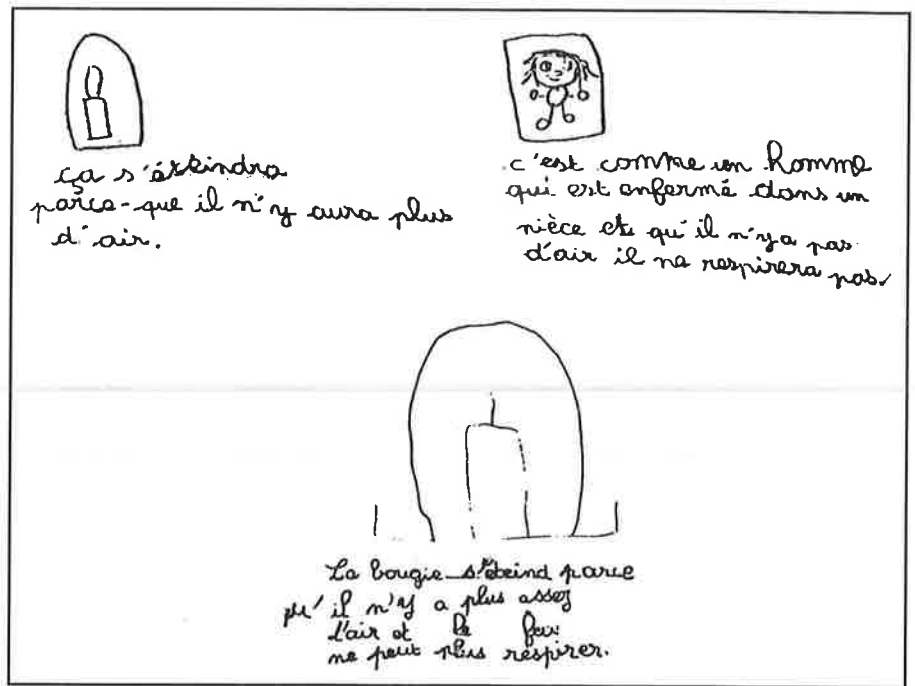 ça s'éteindra
parce-que il n'y aura plus
d'air.
c'est comme un homme
qui est enfermé dans un
nièce et qu'il n'y a pas
d'air il ne respirera pas.
La bougie s'éteind parce
qu'il n'y a plus assez
d'air et le feu
ne peut plus respirer.